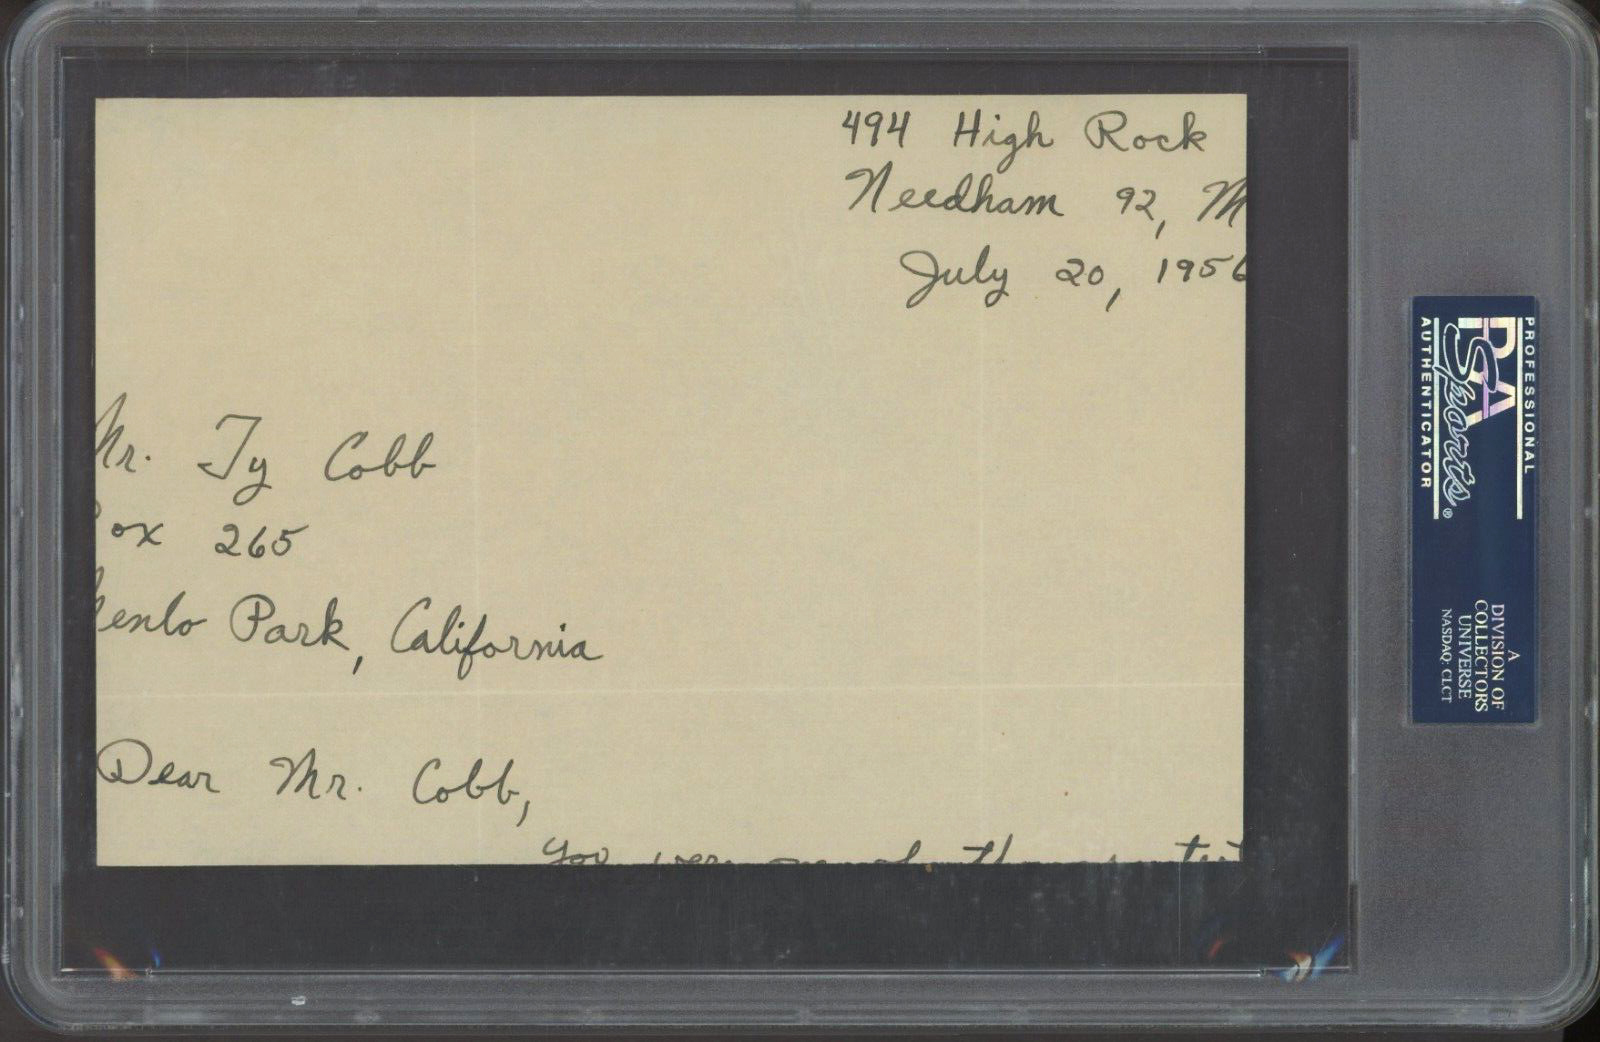 494 High Rock
Needham 92, M
July 20, 1956
Mr. Ty Cobb
ox 265
enlo Park, California
Dear Mr. Cobb,
You were
PROFESSIONAL
PSA
Sports®
AUTHENTICATOR
A
DIVISION OF
COLLECTORS
UNIVERSE
NASDAQ: CLCT